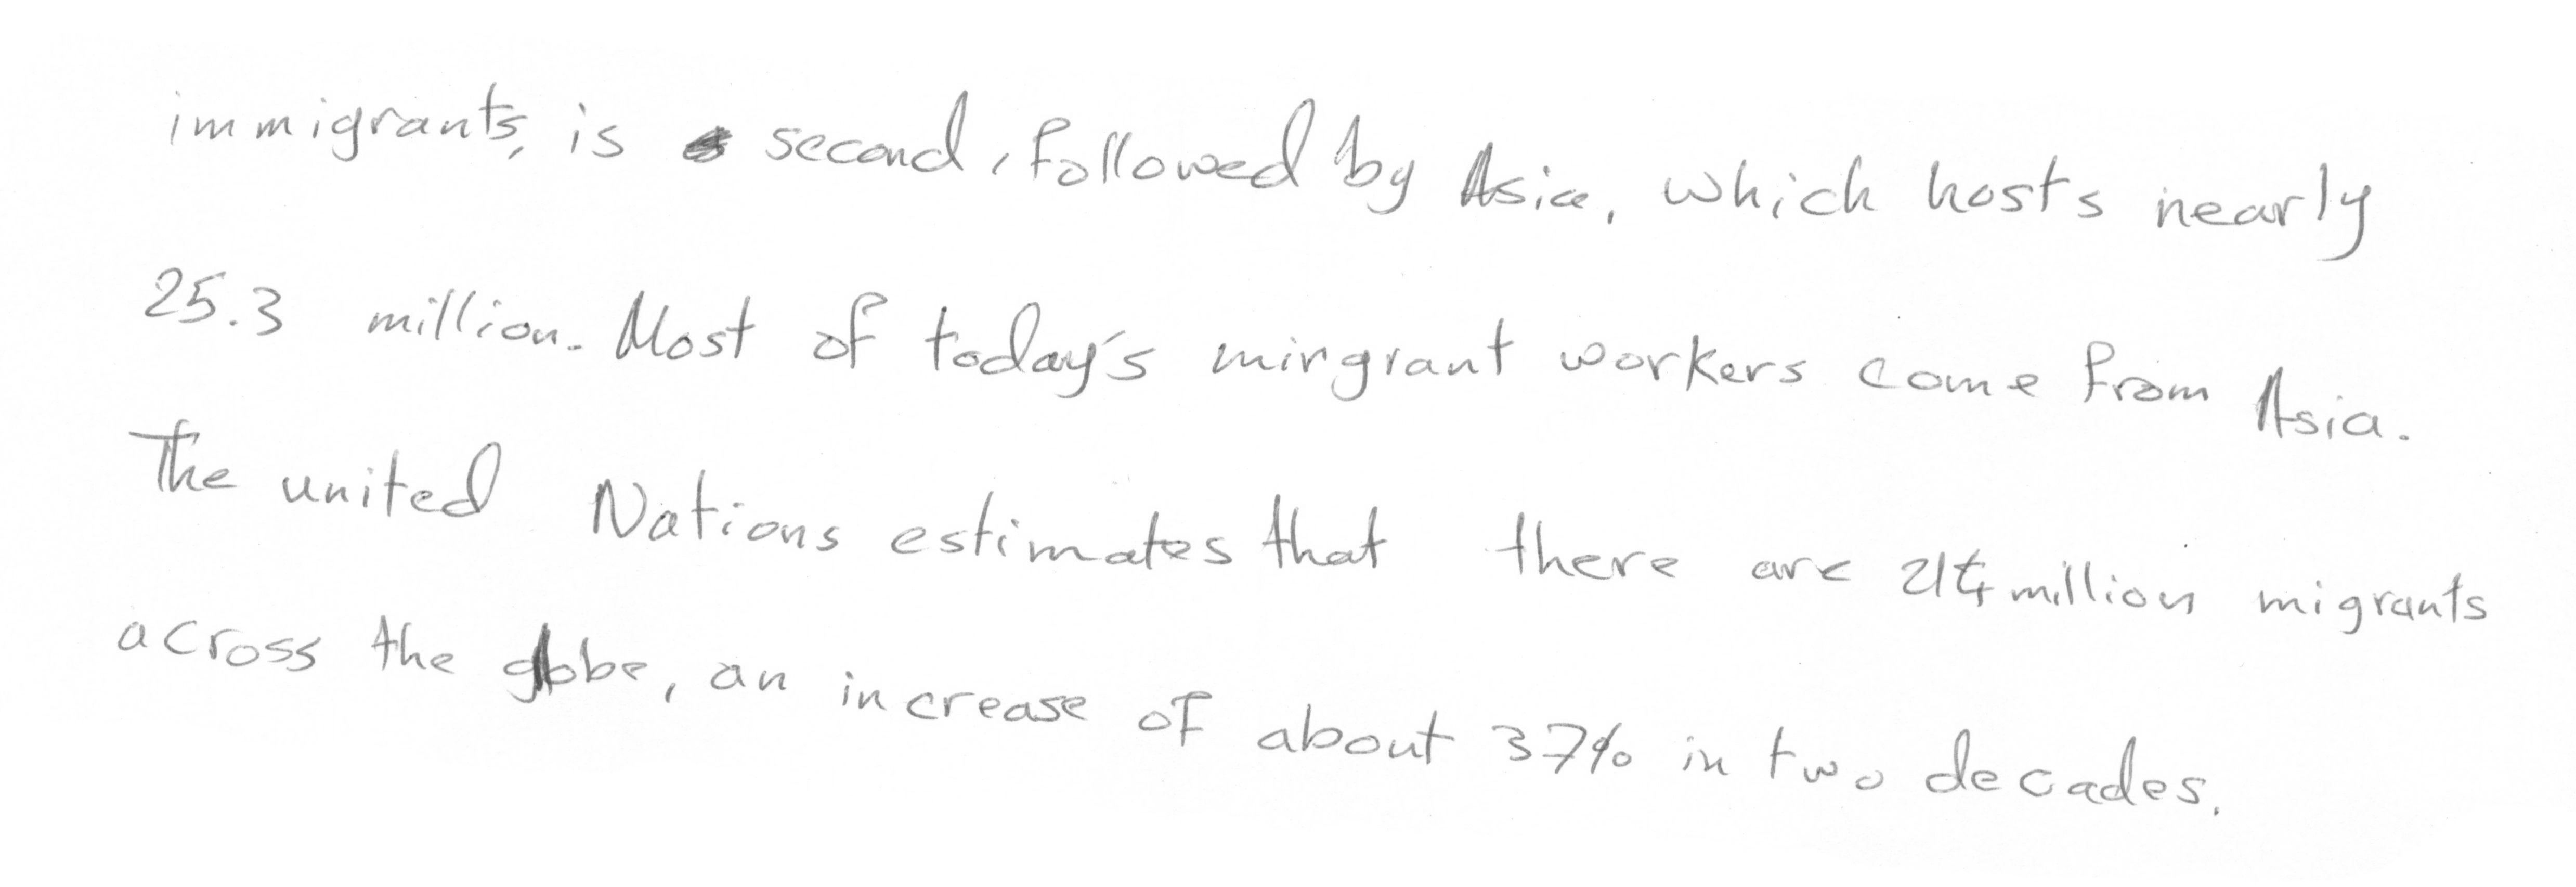 immigrants, is second, followed by Asia, which hosts nearly
25.3 million. Most of today's mirgrant workers come from Asia.
The united Nations estimates that there are 214 million migrants
across the globe, an increase of about 37% in two decades.